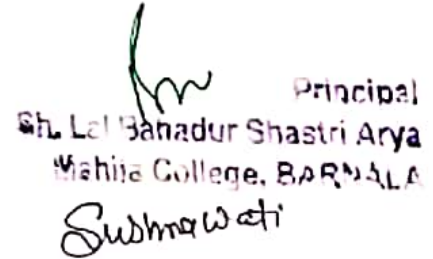 Principal
Sh. Lal Bahadur Shastri Arya
Mahila College, BARNALA
Sushmawati